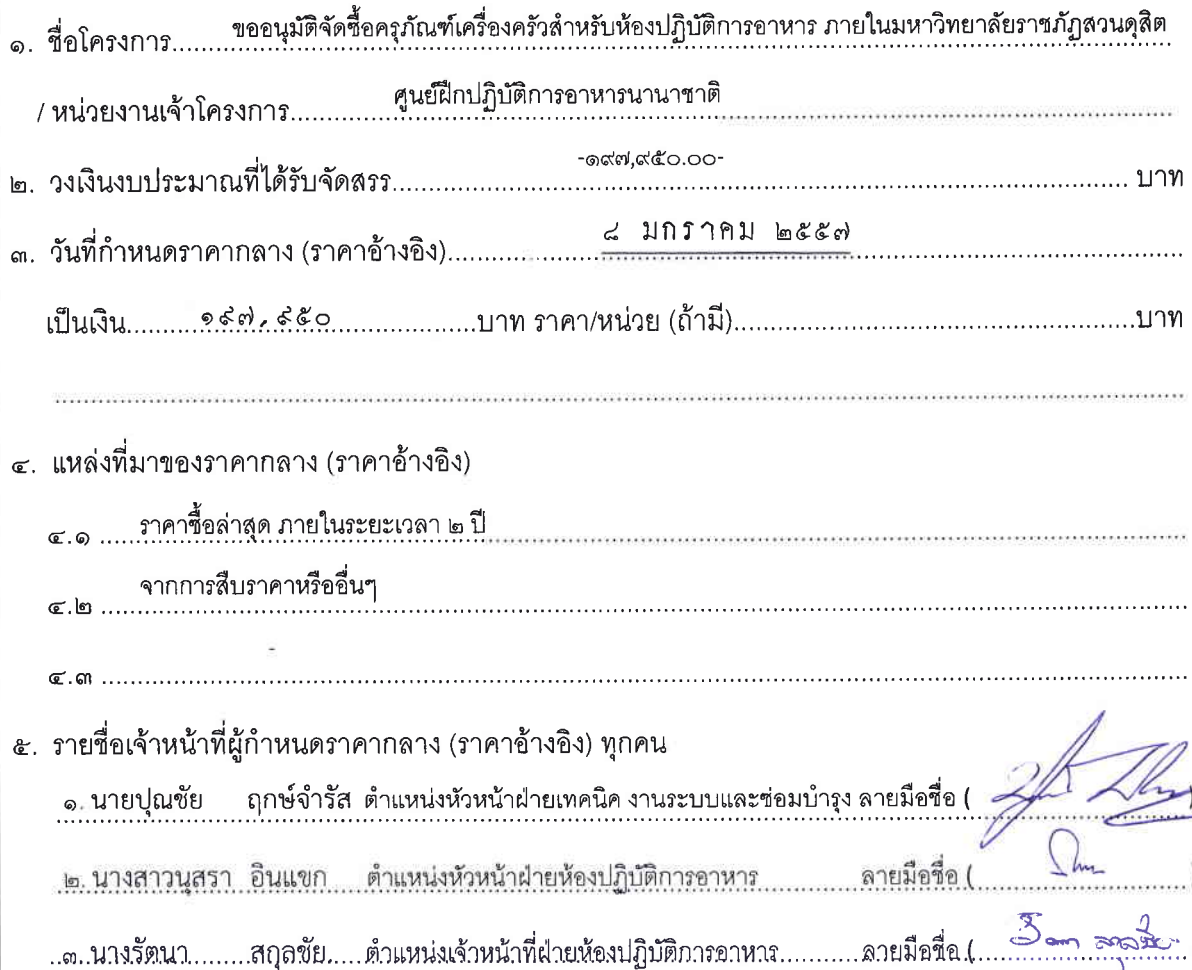 ๑. ชื่อโครงการ ขออนุมัติจัดซื้อครุภัณฑ์เครื่องครัวสำหรับห้องปฏิบัติการอาหาร ภายในมหาวิทยาลัยราชภัฏสวนดุสิต
/ หน่วยงานเจ้าโครงการ ศูนย์ฝึกปฏิบัติการอาหารนานาชาติ
๒. วงเงินงบประมาณที่ได้รับจัดสรร -๑๙๗,๙๕๐.๐๐- บาท
๓. วันที่กำหนดราคากลาง (ราคาอ้างอิง) ๘ มกราคม ๒๕๕๗
เป็นเงิน ๑๙๗,๙๕๐ บาท ราคา/หน่วย (ถ้ามี) บาท
๔. แหล่งที่มาของราคากลาง (ราคาอ้างอิง)
๔.๑ ราคาซื้อล่าสุด ภายในระยะเวลา ๒ ปี
๔.๒ จากการสืบราคาหรืออื่นๆ
๔.๓ -
๕. รายชื่อเจ้าหน้าที่ผู้กำหนดราคากลาง (ราคาอ้างอิง) ทุกคน
๑. นายปุณชัย ฤกษ์จำรัส ตำแหน่งหัวหน้าฝ่ายเทคนิค งานระบบและซ่อมบำรุง ลายมือชื่อ (
๒. นางสาวนุสรา อินแขก ตำแหน่งหัวหน้าฝ่ายห้องปฏิบัติการอาหาร ลายมือชื่อ (
๓. นางรัตนา สกุลชัย ตำแหน่งเจ้าหน้าที่ฝ่ายห้องปฏิบัติการอาหาร ลายมือชื่อ (